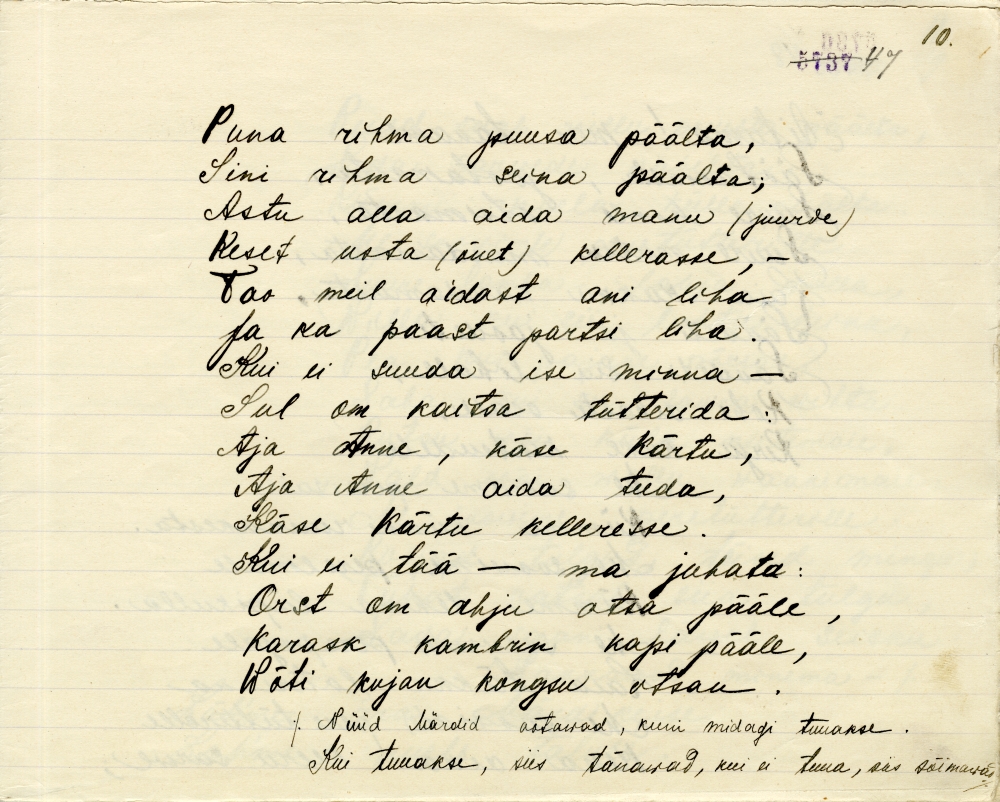 10.
5737 47
Puna rihma puusa päälta,
Sini rihma seina päälta;
Astu alla aida manu (juurde)
Keset usta (õuet) kellerasse, —
Too meil aidast ani liha
Ja ka paast partsi liha.
Kui ei suuda ise minna —
Sul om kaitsa tütterida:
Aja Anne, käse Kärtu,
Aja Anne aida teeda,
Käse Kärtu kelleresse.
Kui ei tää — ma juhata:
Orst om ahju otsa pääle,
Karask kambrin kapi pääle,
Wõti kojan kongsu otsan.
/. Nüüd Märdid ootawad, kuni midagi tuuakse.
Kui tuuakse, siis tänawad, kui ei tuua, siis sõimawad